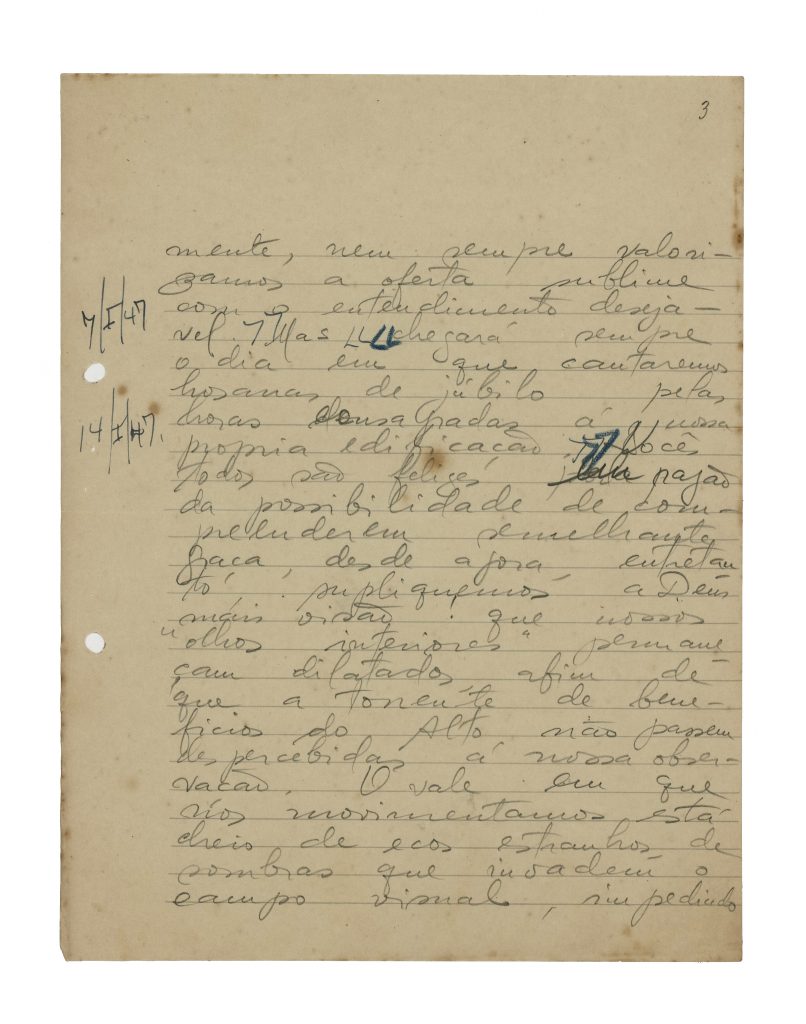 3
mente, nem sempre valori-
zamos a oferta sublime
com o entendimento deseja-
7/I/47
vel. Mas chegará sempre
o dia em que cantaremos
hosanas de júbilo pelas
horas consagradas á nossa
14/I/47.
propria edificação. Vocês
todos são felizes, em razão
da possibilidade de com-
preenderem semelhante
graça, desde agora, entretan
to, supliquemos a Deus
mais visão. que nossos
"olhos interiores" permane-
çam dilatados, afim de
que a torrente de bene-
ficios do Alto não passem
despercebidas á nossa obser-
vação. O vale em que
nos movimentamos está
cheio de ecos estranhos de
sombras que invadem o
campo visual, impedindo